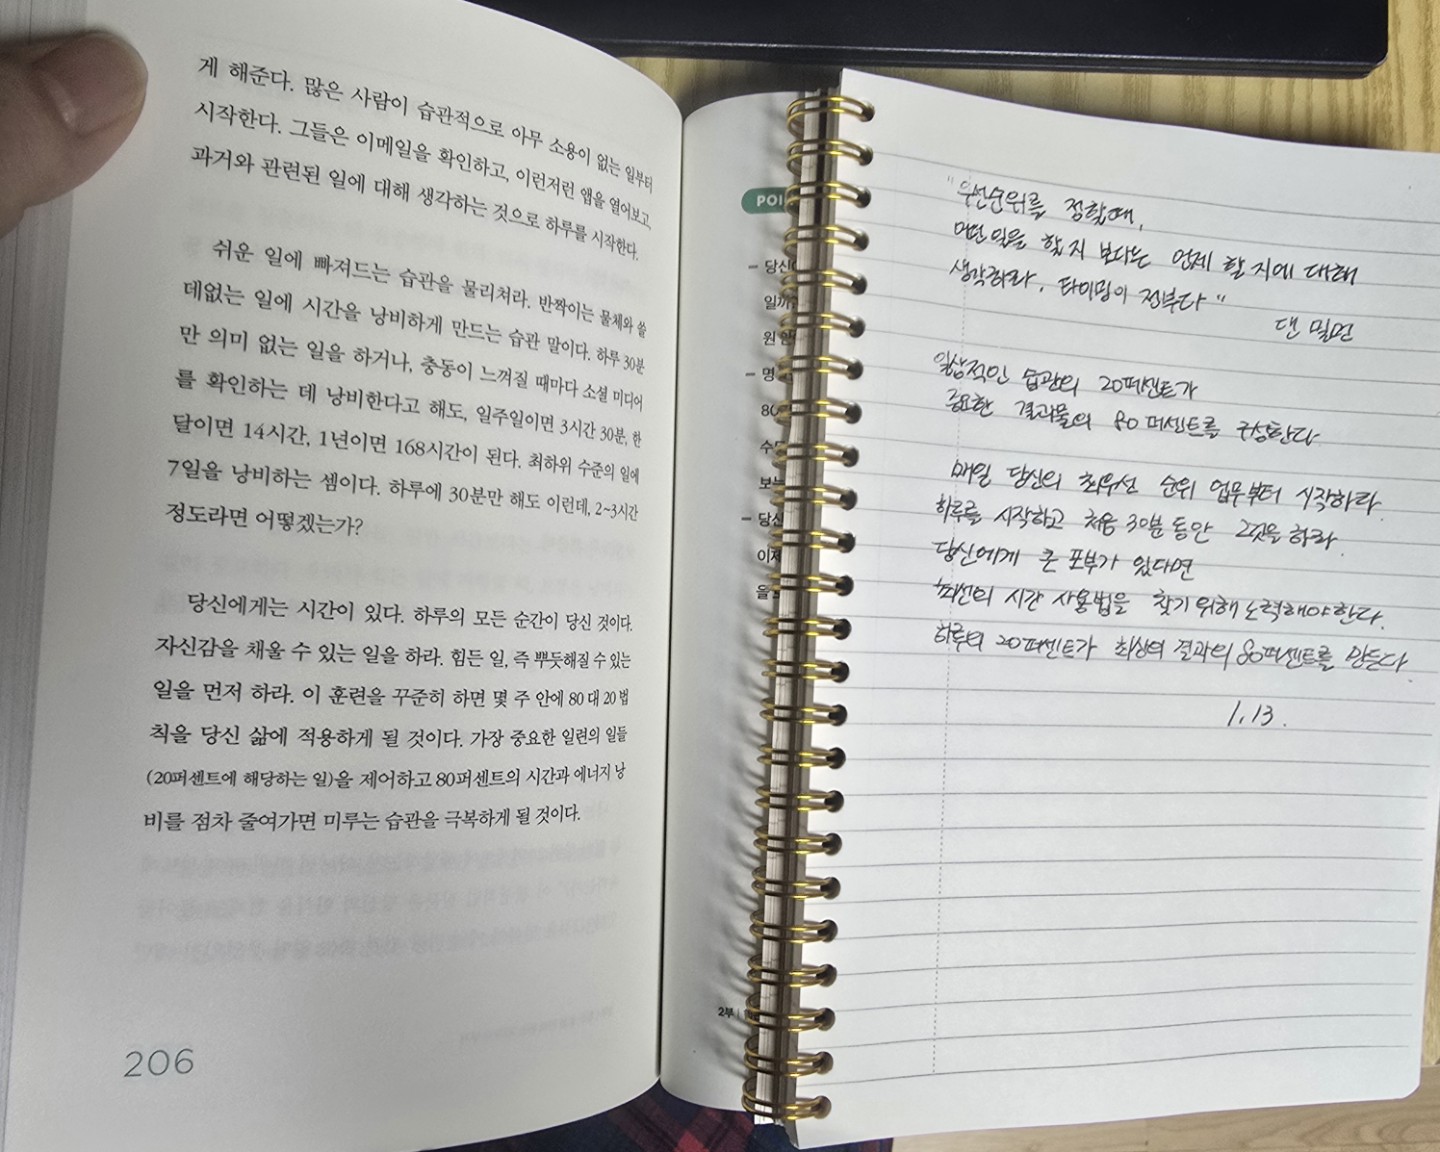 게 해준다. 많은 사람이 습관적으로 아무 소용이 없는 일부터
시작한다. 그들은 이메일을 확인하고, 이런저런 앱을 열어보고,
과거와 관련된 일에 대해 생각하는 것으로 하루를 시작한다.
쉬운 일에 빠져드는 습관을 물리쳐라. 반짝이는 물체와 쓸
데없는 일에 시간을 낭비하게 만드는 습관 말이다. 하루 30분
만 의미 없는 일을 하거나, 충동이 느껴질 때마다 소셜 미디어
를 확인하는 데 낭비한다고 해도, 일주일이면 3시간 30분, 한
달이면 14시간, 1년이면 168시간이 된다. 최하위 수준의 일에
7일을 낭비하는 셈이다. 하루에 30분만 해도 이런데, 2~3시간
정도라면 어떻겠는가?
당신에게는 시간이 있다. 하루의 모든 순간이 당신 것이다.
자신감을 채울 수 있는 일을 하라. 힘든 일, 즉 뿌듯해질 수 있는
일을 먼저 하라. 이 훈련을 꾸준히 하면 몇 주 안에 80 대 20 법
칙을 당신 삶에 적용하게 될 것이다. 가장 중요한 일련의 일들
(20퍼센트에 해당하는 일)을 제어하고 80퍼센트의 시간과 에너지 낭
비를 점차 줄여가면 미루는 습관을 극복하게 될 것이다.
206
POI
– 당신
일까
원
– 명
80
수
보는
– 당신
이제
을
2부
"우선순위를 정할때,
어떤 일을 할지 보다는 언제 할지에 대해
생각하라. 타이밍이 전부다"
댄 밀먼
일상적인 습관의 20퍼센트가
중요한 결과물의 80퍼센트를 구성한다
매일 당신의 최우선 순위 업무부터 시작하라.
하루를 시작하고 처음 30분 동안 그것을 하라.
당신에게 큰 포부가 있다면
최선의 시간 사용법을 찾기 위해 노력해야한다.
하루의 20퍼센트가 최상의 결과의 80퍼센트를 만든다.
1.13.